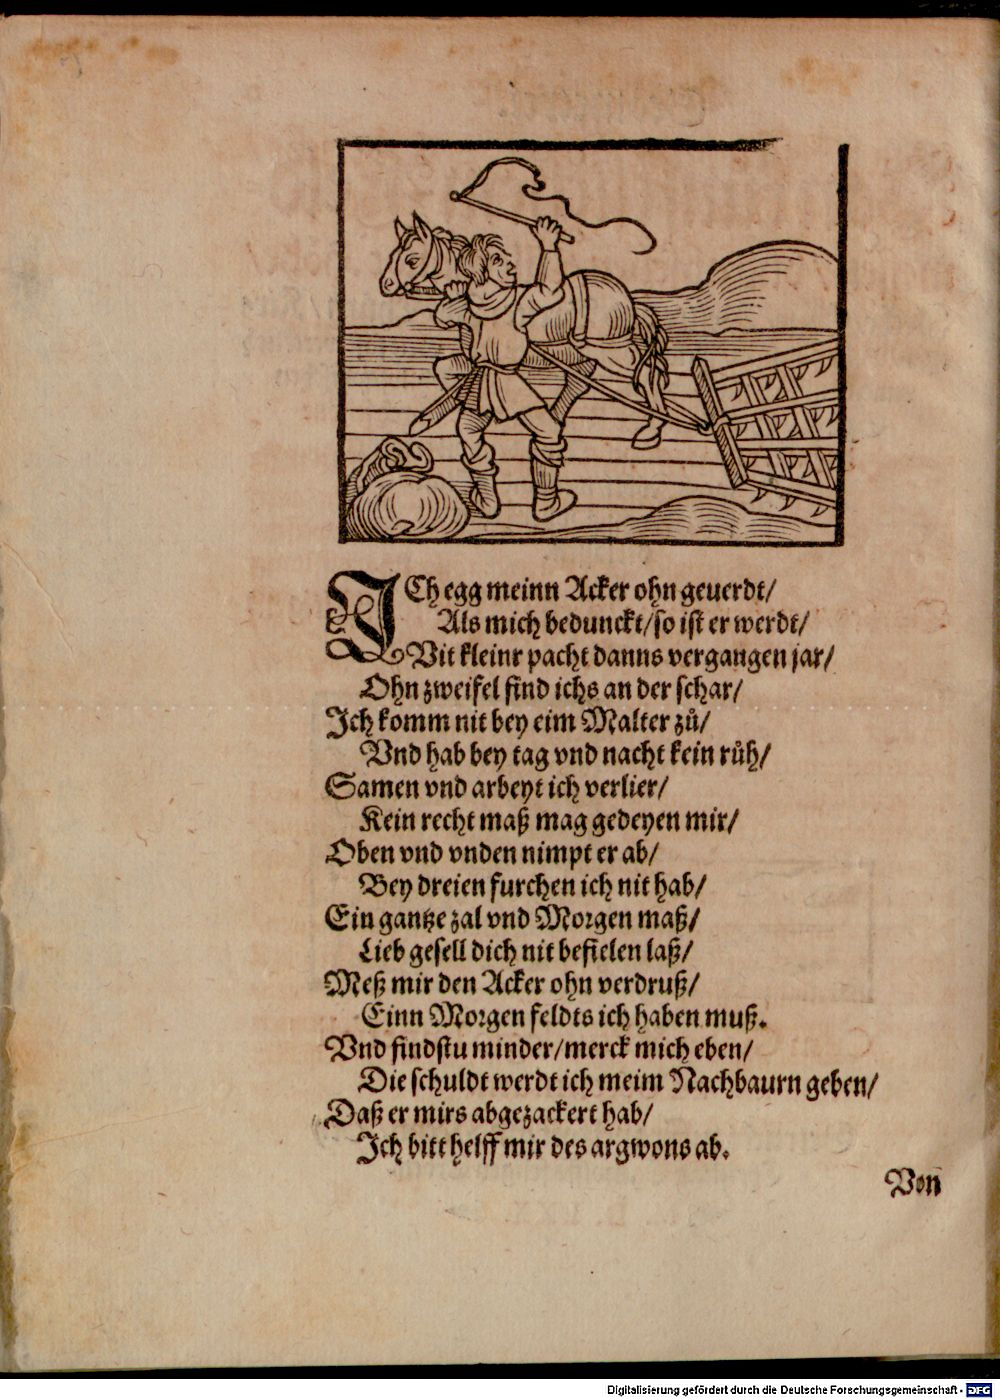 ICh egg meinn Acker ohn geuerdt/
Als mich bedunckt/so ist er werdt/
Vit kleinr pacht danns vergangen jar/
Ohn zweifel find ichs an der schar/
Ich komm nit bey eim Malter zů/
Vnd hab bey tag vnd nacht kein růh/
Samen vnd arbeyt ich verlier/
Kein recht maß mag gedeyen mir/
Oben vnd vnden nimpt er ab/
Bey dreien furchen ich nit hab/
Ein gantze zal vnd Morgen maß/
Lieb gesell dich nit befielen laß/
Meß mir den Acker ohn verdruß/
Einn Morgen feldts ich haben muß.
Vnd findstu minder/merck mich eben/
Die schuldt werdt ich meim Nachbaurn geben/
Daß er mirs abgezackert hab/
Ich bitt helff mir des argwons ab.
Von
Digitalisierung gefördert durch die Deutsche Forschungsgemeinschaft - DFG